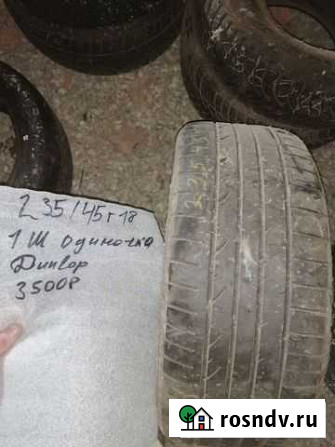 235/45 r 18
1 Ш одиночка
Дунлор
3500р
rosndv.ru